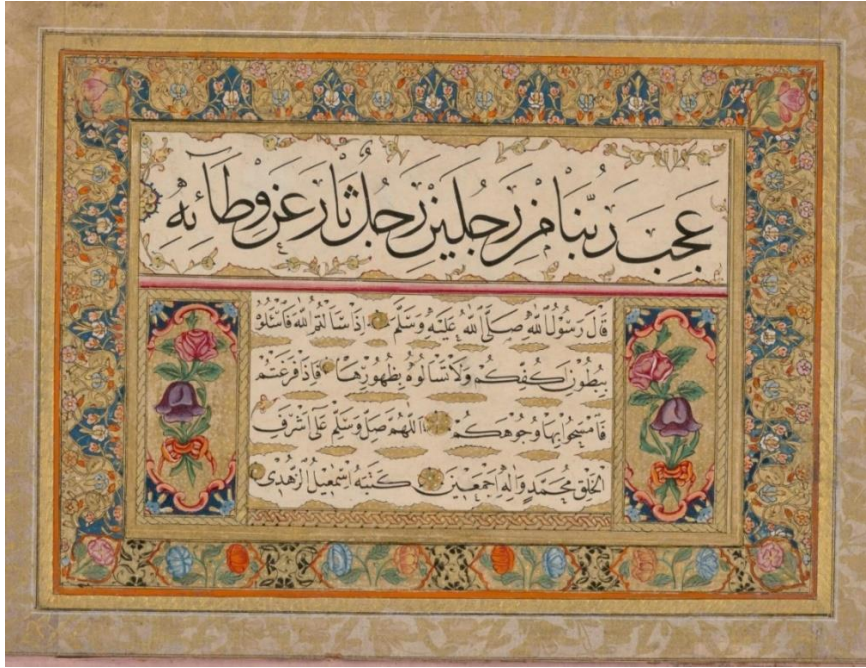 عَجِبَ رَبُّنَا مِنْ رَجُلَيْنِ رَجُلٌ ثَارَ عَنْ وِطَائِهِ
قَالَ رَسُولُ اللهِ صَلَّى اللهُ عَلَيْهِ وَسَلَّمَ اِذَا سَاَلْتُمُ اللهَ فَاسْئَلُوهُ
بِبُطُونِ اَكُفِّكُمْ وَلَا تَسْاَلُوهُ بِظُهُورِهَا فَاِذَا فَرَغْتُمْ
فَامْسَحُوا بِهَا وُجُوهَكُمْ اَللّٰهُمَّ صَلِّ وَسَلِّمْ عَلَى اَشْرَفِ
الْخَلْقِ مُحَمَّدٍ وَاٰلِهِ اَجْمَعِينَ كَتَبَهُ اِسْمٰعِيلُ الزُّهْدِي